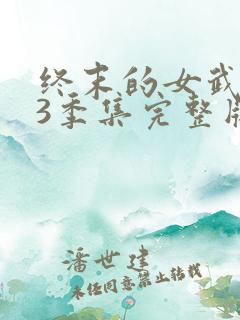 终末的女武
3季集完整版
潘世建
未经同意禁止转载